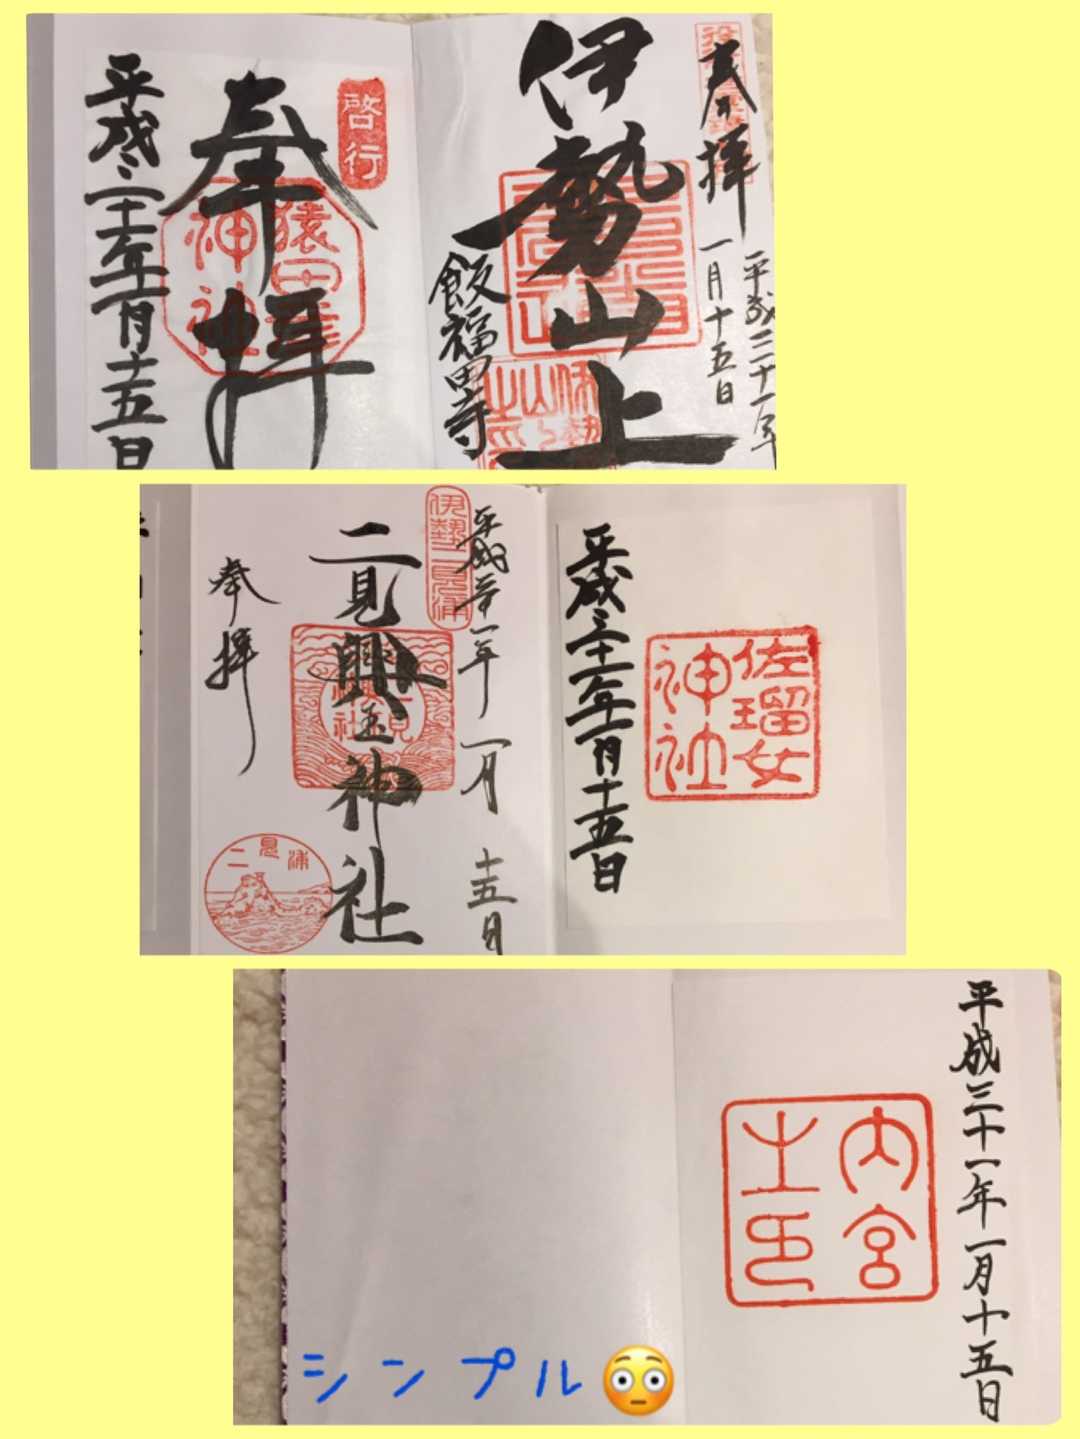 奉拝
平成三十一年
一月十五日
伊勢山上
飯福田寺
伊勢山上之印
啓行
奉拝
猿田彦神社
平成三十一年一月十五日
平成三十一年
一月
十五日
伊勢二見浦
二見興玉神社
奉拝
二見浦
平成三十一年一月十五日
佐瑠女神社
平成三十一年一月十五日
内宮之印
シンプル😳